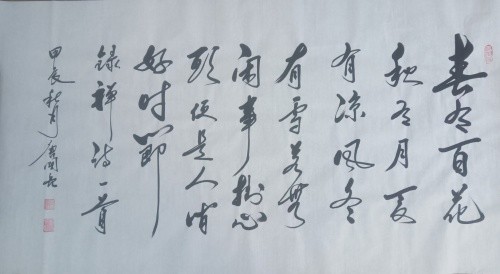 春有百花
秋有月夏
有凉风冬
有雪若無
闲事掛心
頭便是人间
好时節
録禅诗一首
甲辰秋月